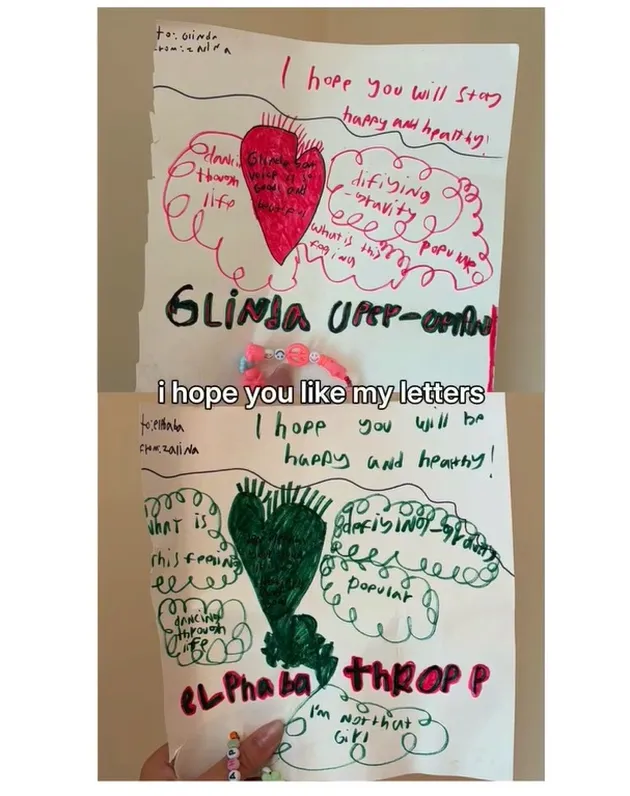 to: Glinda
from: zalina
I hope you will stay
happy and healthy!
dancing
though
life
Glinda your
voice is so
good and
difiying
-gravity
popular
what is this
feeling
GLiNda UPPP-
i hope you like my letters
to: elphaba
from: zalina
I hope you will be
happy and healthy!
what is
this feeling
defiying-gravity
popular
dancing
through
life
eLPhaba thROPP
I'm Not that
Girl